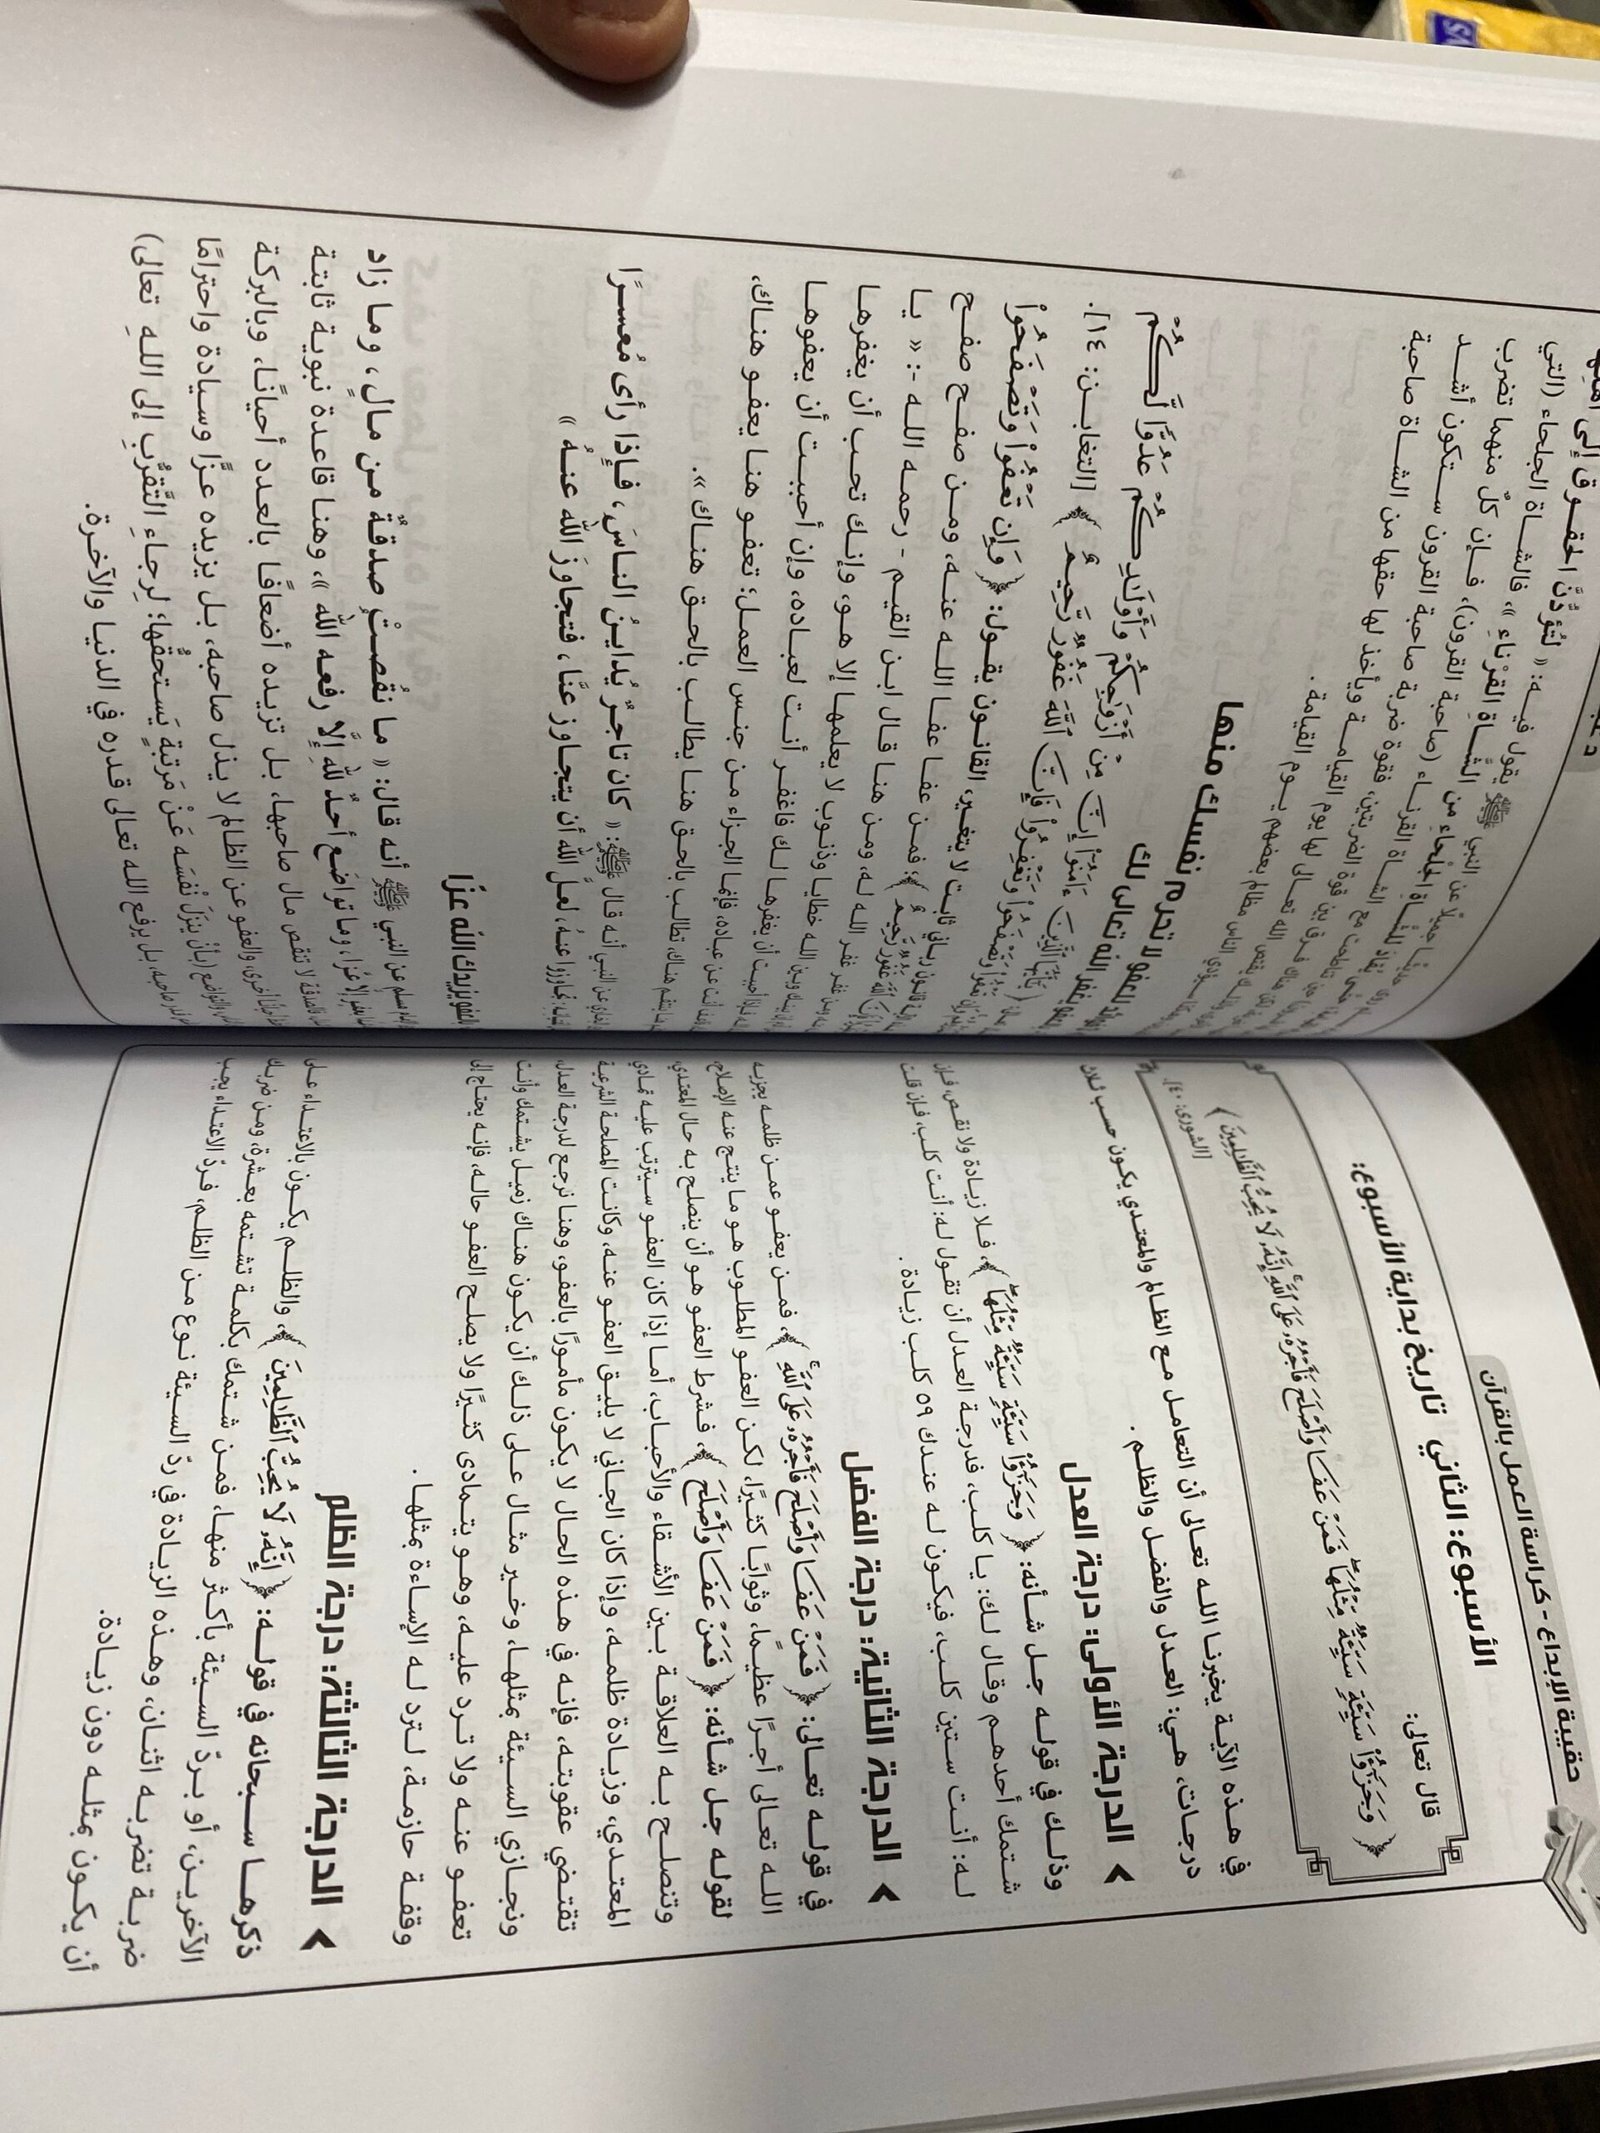 حقيبة الإبداع - كراسة العمل بالقرآن
الأسبوع: الثاني تاريخ بداية الأسبوع:
قال تعالى:
﴿ وَجَزَٰٓؤُا۟ سَيِّئَةٍ سَيِّئَةٌ مِّثْلُهَا ۖ فَمَنْ عَفَا وَأَصْلَحَ فَأَجْرُهُۥ عَلَى ٱللَّهِ ۚ إِنَّهُۥ لَا يُحِبُّ ٱلظَّٰلِمِينَ ﴾
[الشورى: ٤٠].
في هذه الآية يخبرنا الله تعالى أن التعامل مع الظالم والمعتدي يكون حسب ثلاث
درجات، هي: العدل والفضل والظلم.
الدرجة الأولى: درجة العدل
وذلك في قوله جل شأنه: ﴿ وَجَزَٰٓؤُا۟ سَيِّئَةٍ سَيِّئَةٌ مِّثْلُهَا ۖ ﴾، فلا زيادة ولا نقص، فإن
شتمك أحدهم وقال لك: يا كلب، فدرجة العدل أن تقول له: أنت كلب، فإن قلت
له: أنت ستين كلب، فيكون له عندك ٥٩ كلب زيادة.
الدرجة الثانية: درجة الفضل
في قوله تعالى: ﴿ فَمَنْ عَفَا وَأَصْلَحَ فَأَجْرُهُۥ عَلَى ٱللَّهِ ۚ ﴾، فمن يعفو عمن ظلمه يجزيه
الله تعالى أجرًا عظيمًا، وثوابًا كثيرًا، لكن العفو المطلوب هو ما ينتج عنه الإصلاح،
لقوله جل شأنه: ﴿ فَمَنْ عَفَا وَأَصْلَحَ ﴾، فشرط العفو هو أن ينصلح به حال المعتدي،
وتنصلح به العلاقة بين الأشقاء والأحباب، أما إذا كان العفو سيترتب عليه تمادي
المعتدي، وزيادة ظلمه، وإذا كان الجاني لا يليق العفو عنه، وكانت المصلحة الشرعية
تقتضي عقوبته، فإنه في هذه الحال لا يكون مأمورًا بالعفو، وهنا نرجع لدرجة العدل،
ونجازي السيئة بمثلها، وخير مثال على ذلك أن يكون هناك زميل يشتمك وأنت
تعفو عنه ولا ترد عليه، وهو يتمادى كثيرًا ولا يصلح العفو حاله، فإنه يحتاج إلى
وقفة حازمة، لترد له الإساءة بمثلها.
الدرجة الثالثة: درجة الظلم
ذكرها سبحانه في قوله: ﴿ إِنَّهُۥ لَا يُحِبُّ ٱلظَّٰلِمِينَ ﴾، والظلم يكون بالاعتداء على
الآخرين، أو بردّ السيئة بأكثر منها، فمن شتمك بكلمة تشتمه بعشرة، ومن ضربك
ضربة تضربه اثنان، وهذه الزيادة في ردّ السيئة نوع من الظلم، فردّ الاعتداء يجب
أن يكون بمثله دون زيادة.
لتُؤَدُّنَّ الحقوق إلى أهلها
عن النبي ﷺ يقول فيه: «
للشَّاةِ الجَلْحاءِ من الشَّاةِ القَرْناءِ »، فالشاة الجلحاء (التي
مع الشاة القرناء (صاحبة القرون)، فإن كلّ منهما تضرب
فرق بين قوة الضربتين، فقوة ضربة صاحبة القرون ستكون أشد
الله تعالى لها يوم القيامة ويأخذ لها حقها من الشاة صاحبة
الناس مظالم بعضهم يوم القيامة.
العفو لا تحرم نفسك منها
يغفر الله تعالى لك
﴿ يَٰٓأَيُّهَا ٱلَّذِينَ ءَامَنُوٓا۟ إِنَّ مِنْ أَزْوَٰجِكُمْ وَأَوْلَٰدِكُمْ عَدُوًّا لَّكُمْ
وَتَصْفَحُوا۟ وَتَغْفِرُوا۟ فَإِنَّ ٱللَّهَ غَفُورٌ رَّحِيمٌ ﴾ [التغابن: ١٤].
قانون رباني ثابت لا يتغير، القانون يقول: ﴿ وَإِن تَعْفُوا۟ وَتَصْفَحُوا۟
ٱللَّهَ غَفُورٌ رَّحِيمٌ ﴾؛ فمن عفا عفا الله عنه، ومن صفح صفح
ومن غفر غفر الله له، ومن هنا قال ابن القيم - رحمه الله -: « يا
بينك وبين الله خطايا وذنوب لا يعلمها إلا هو، وإنك تحب أن يغفرها
فإذا أحببت أن يغفرها لك فاغفر أنت لعباده، وإن أحببت أن يعفوها
أنت عن عباده، فإنما الجزاء من جنس العمل: تعفو هنا يعفو هناك،
هنا ينتقم هناك، تطالب بالحق هنا يطالب بالحق هناك ».
عن النبي أنه قال ﷺ: « كان تاجرٌ يُداينُ الناسَ، فإذا رأى مُعسرًا
تجاوزوا عنهُ، لعلَّ اللهَ أن يتجاوز عنَّا، فتجاوزَ اللهُ عنهُ »
العفو يزيدك الله عزًا
مسلم عن النبي ﷺ أنه قال: « ما نقصتْ صدقةٌ من مالٍ، وما زاد
بعفوٍ إلَّا عزًا، وما تواضَع أحدٌ للَّهِ إلَّا رفعه الله »، وهنا قاعدة نبوية ثابتة
الصدقة لا تنقص مال صاحبها، بل تزيده أضعافًا بالعدد أحيانًا، وبالبركة
أحيانًا أخرى، والعفو عن الظالم لا يذل صاحبه، بل يزيده عزًّا وسيادة واحترامًا
والتواضع (بأنْ يُنزِلَ نَفْسَه عَنْ مَرتبةٍ يَستحقُّها؛ لِرجاءِ التَّقرُّبِ إلى اللهِ تعالى)
صاحبه، بل يرفع الله تعالى قدره في الدنيا والآخرة.